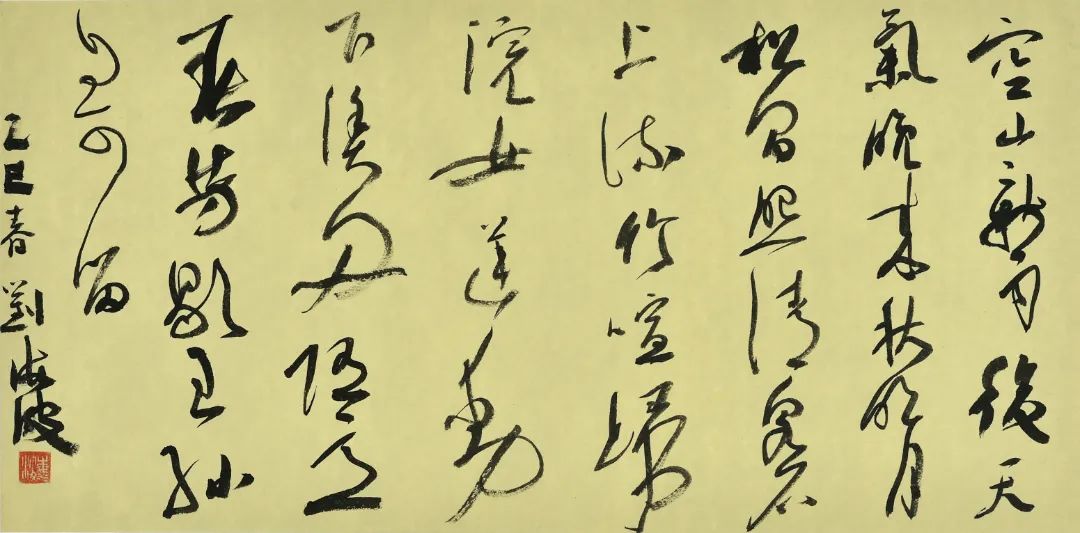 空山新雨後天
氣晚來秋明月
松間照清泉石
上流竹喧歸
浣女蓮動
下漁舟隨意
春芳歇王孫
自可留
乙巳春劉海波